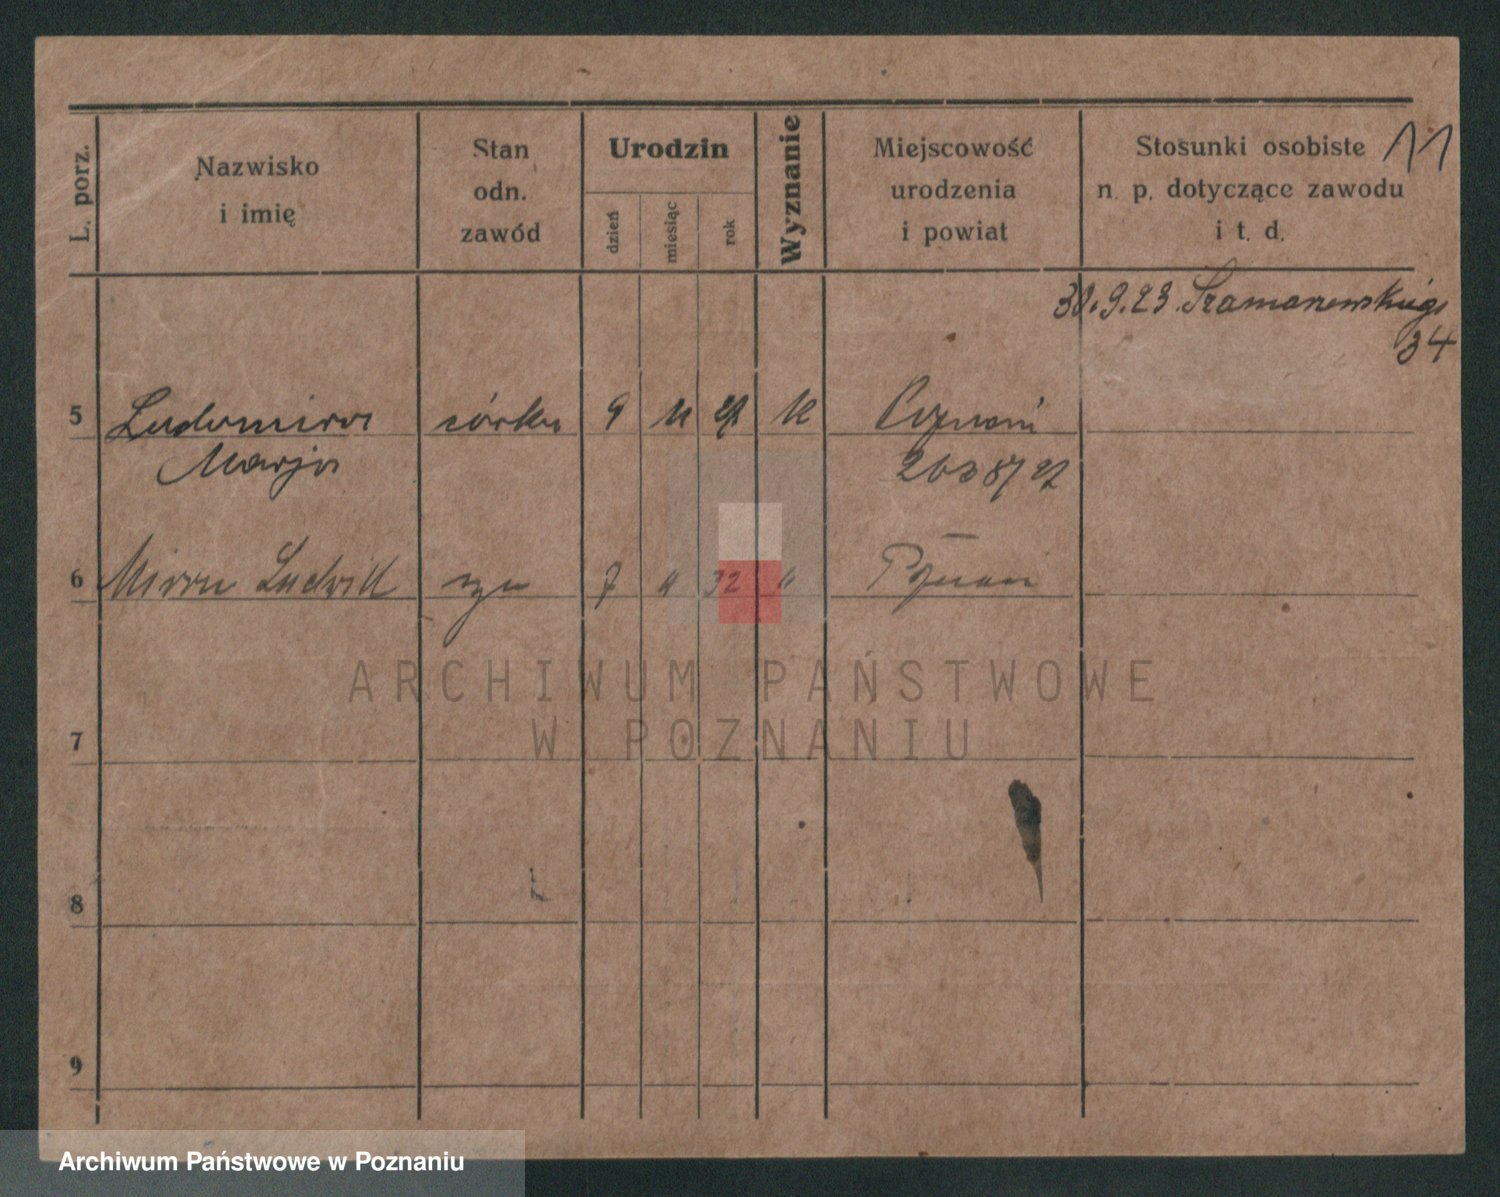 L. porz.
Nazwisko
i imię
Stan
odn.
zawód
Urodzin
dzień
miesiąc
rok
Wyznanie
Miejscowość
urodzenia
i powiat
Stosunki osobiste
n. p. dotyczące zawodu
i t. d.
11
30.9.23. Szamarzewskiego
34
5 Ludomira córka 9 11 27 K Poznań
Marja
6 Miron Ludwik syn 7 " 32 " Poznań
7
8
9
ARCHIWUM PAŃSTWOWE
W POZNANIU
Archiwum Państwowe w Poznaniu